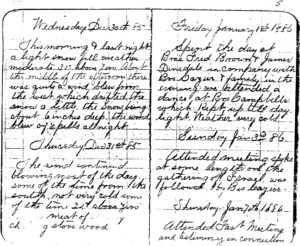 Wednesday Dec 30th 85
This morning & last night
a light snow fell weather
moderate 21° above zero. about
the middle of the afternoon there
was quite a wind blew from
the west, which drifted the
snow a little, the snow being
about 6 inches deep. the wind
blew in spells all night
Thursday Dec 31st 85
The wind continued
blowing most of the day
some of the time from the
south, not very cold some
of the time 22° above zero
meat of
stove wood
5
Friday January 1st 1886
Spent the day at
Bros Fred Brown & James
Dinsdale in company with
Bro Sagier & family, in the
evening we attended a
dance at Bro Campbells
which kept up till day
light. Weather very cold
Sunday Jan 3rd 86.
Attended meeting spoke
at some length on the
gathering of Israel was
followed by Bro Sagier.
Thursday, Jany 7th 1886.
Attended Fast Meeting
and testimony in connection